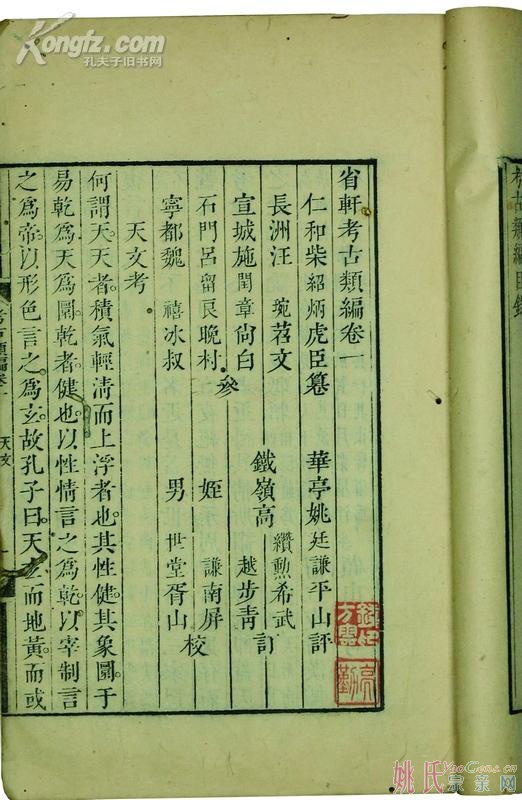 Kongfz.com
孔夫子旧书网
省軒考古類編卷一
仁和柴紹炳虎臣纂　華亭姚廷謙平山評
長洲汪　琬苕文
宣城施閏章尙白
石門呂留良晚村
寧都魏　禧冰叔
參
鐵嶺高
纘勲希武
越步靑
訂
姪　謙南屏
男　世堂胥山
校
天文考
何謂天天者積氣輕清而上浮者也其性健其象圓于
易乾爲天爲圜乾者健也以性情言之爲乾以宰制言
之爲帝以形色言之爲玄故孔子曰天玄而地黃而或
考古類編卷一
天文
考古類編目錄
姚氏宗亲网
YaoGens.cn